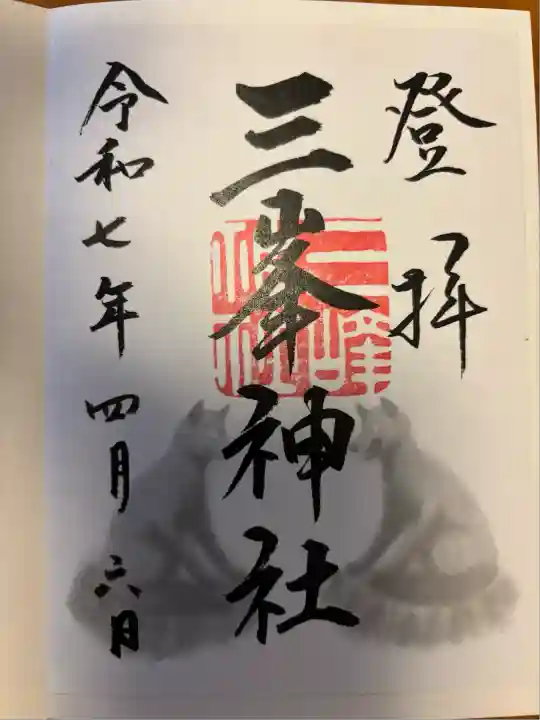 登拝
三峯神社
三峰神社
令和七年四月六日